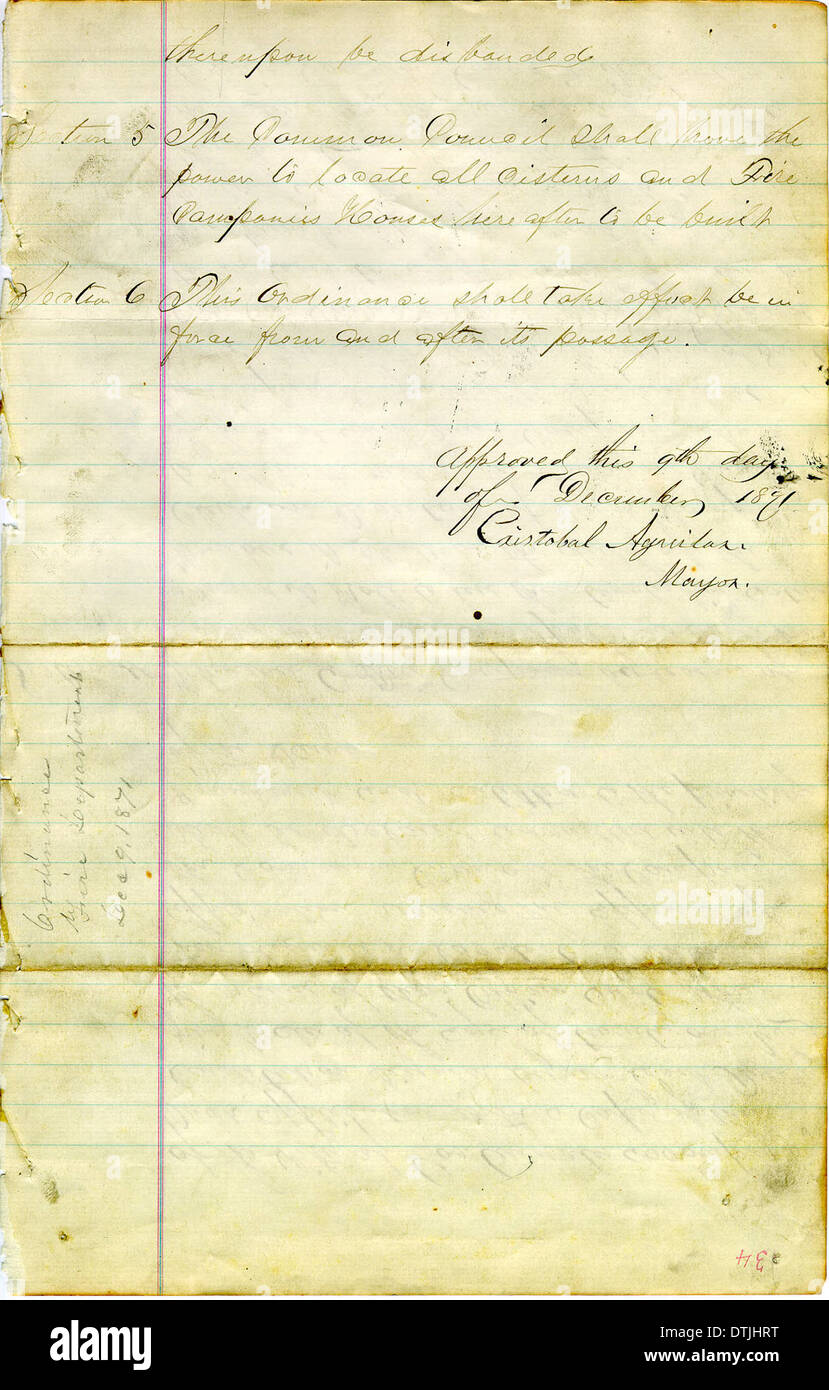 thereupon be disbanded
Section 5 The Common Council shall have the
power to locate all cisterns and Fire
Companies Houses hereafter to be built
Section 6 This Ordinance shall take effect be in
force from and after its passage.
Approved this 9th day
of December 1871
Cristobal Aguilar.
Mayor.
Ordinance
Fire Department
Dec 9, 1871
34
alamy
alamy
alamy
alamy
alamy
Image ID: DTJHRT
www.alamy.com